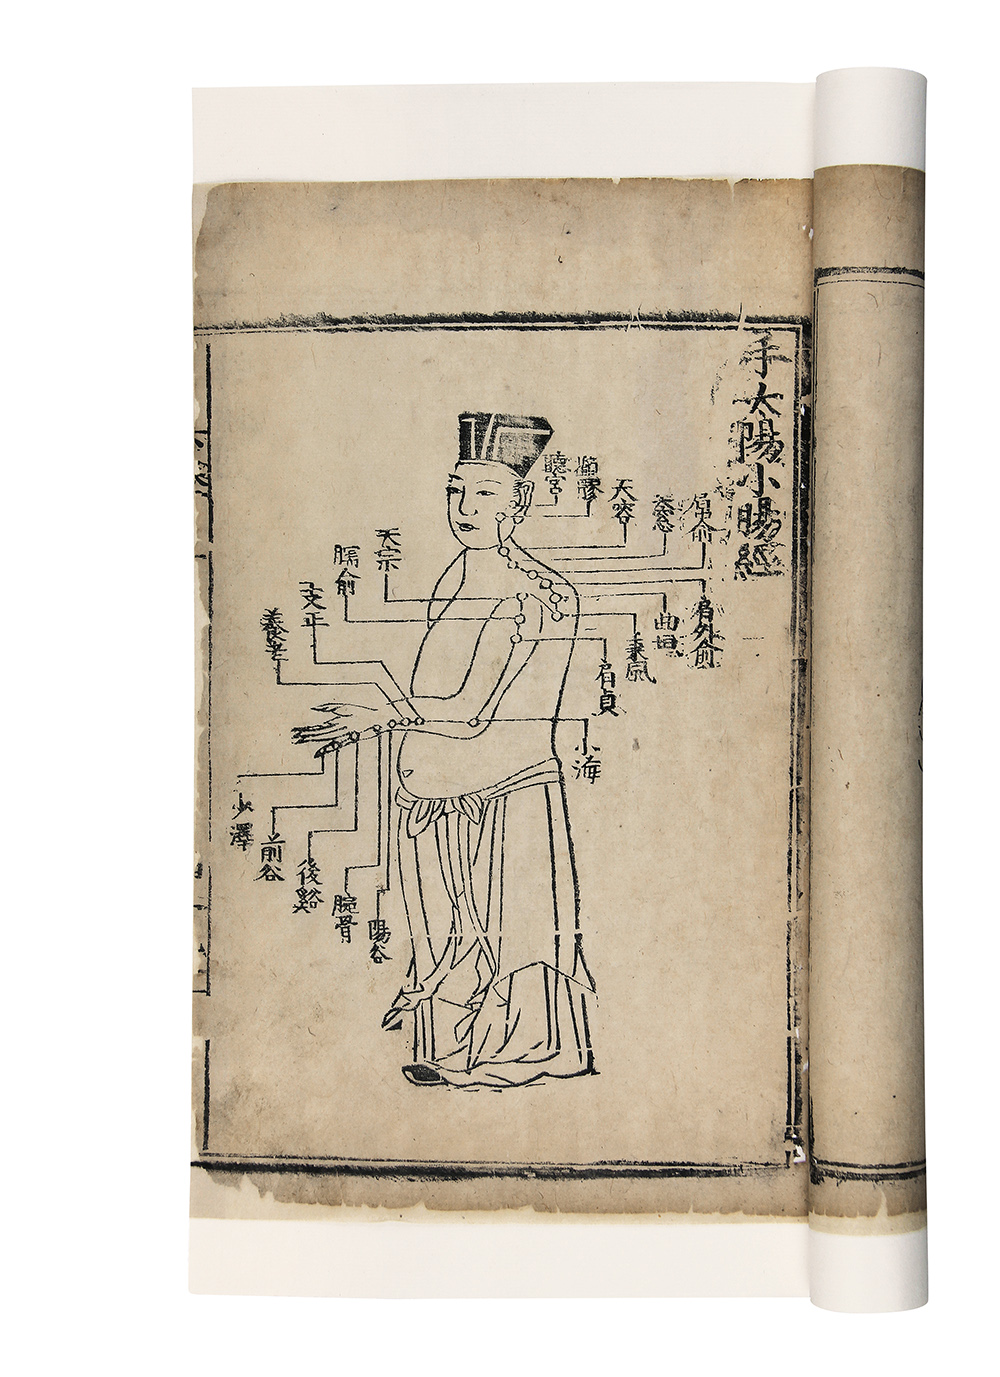 手太陽小腸經
肩俞
肩外俞
天窓
曲垣
天容
秉風
顴髎
肩貞
聽宮
小海
天宗
臑俞
支正
養老
陽谷
腕骨
後谿
前谷
少澤